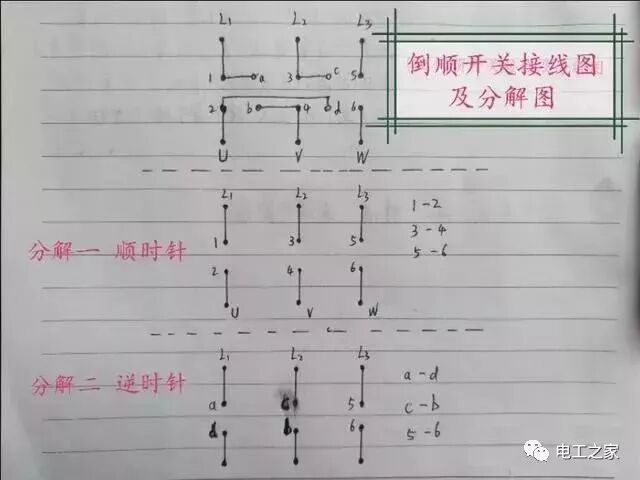 L₁ L₂ L₃
倒顺开关接线图
及分解图
1 a 3 c 5
2 b 4 d 6
U V W
L₁ L₂ L₃
1 3 5
1-2
3-4
5-6
分解一 顺时针
2 4 6
U V W
L₁ L₂ L₃
分解二 逆时针
a c 5
a-d
c-b
5-6
d b 6
电工之家